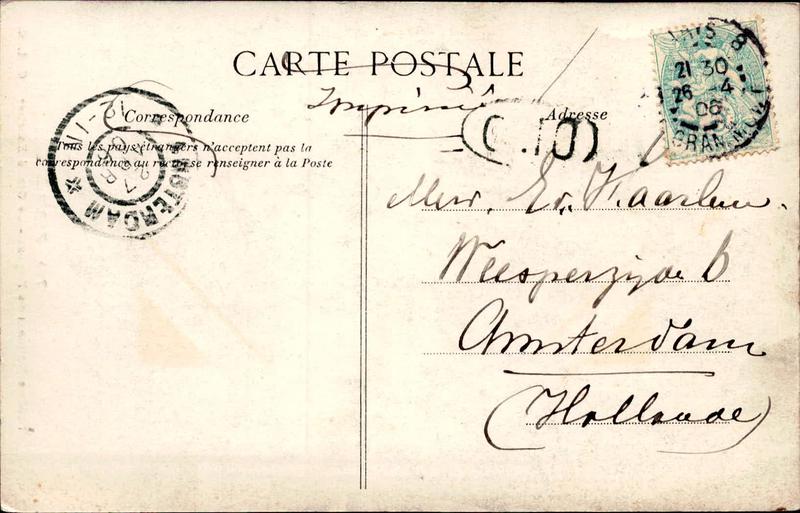 CARTE POSTALE
Imprimé
Correspondance
Adresse
Tous les pays étrangers n'acceptent pas la
correspondance au recto, se renseigner à la Poste
PARIS 8
21 30
26 4
06
12-1
27
AMSTERDAM
Mevr. Haarlem.
Weesperzijde 6
Amsterdam
(Hollande)